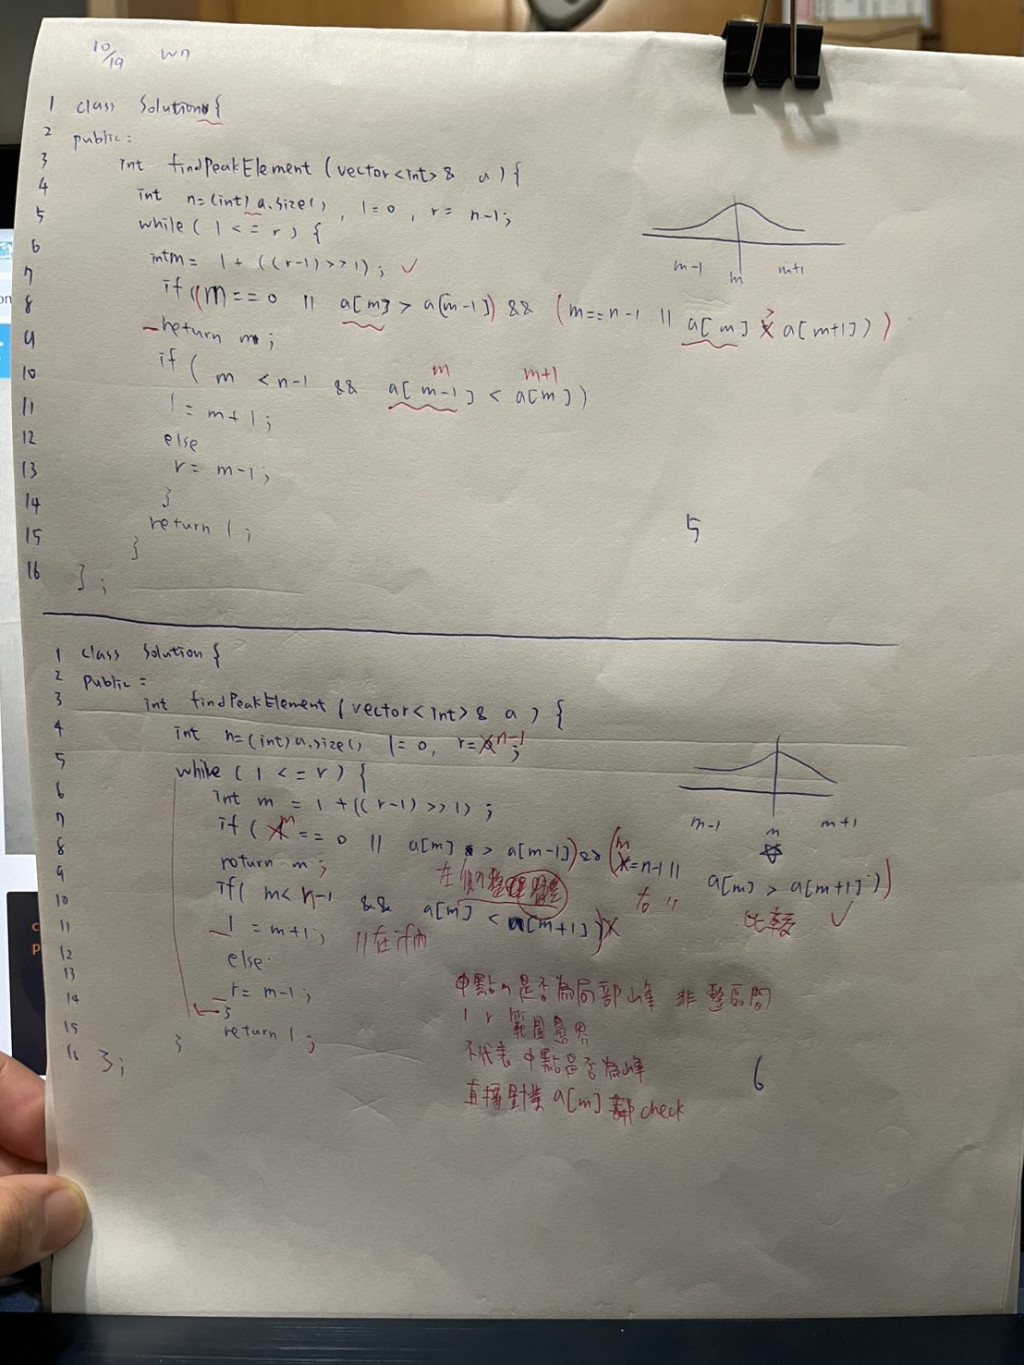 10/19 W7
1 class Solution {
2 public:
3 int findPeakElement (vector<int> & a) {
4 int n=(int) a.size(), l=0, r= n-1;
5 while( l <= r ) {
6 int m= l + ((r-l)>>1); ✓
7 if ((m==0 || a[m] > a[m-1]) && (m==n-1 || a[m] > a[m+1]))
8 return m;
9 if ( m < n-1 && a[m-1] < a[m])
m m+1
10
11 l = m+1;
12 else
13 r= m-1;
14 }
15 return l;
}
16 };
m-1 m m+1
5
1 class Solution {
2 public:
3 int findPeakElement (vector<int> & a) {
4 int n=(int)a.size() l=0, r= n-1;
5 while (l <= r) {
6 int m = l + ((r-l) >> 1);
7 if ( m == 0 || a[m] > a[m-1]) && (m = n-1 || a[m] > a[m+1]))
8 return m;
9 if( m< n-1 && a[m] < a[m+1])
10
11 l = m+1; //在if內
12 else
13 r= m-1;
14 }
15 return l;
}
16 };
m-1 m m+1
右 〃 比較 ✓
中點m是否為局部山峰 非整區間
l r 範圍邊界
不代表 中點是否為峰
直接對 a[m] 鄰 check
6